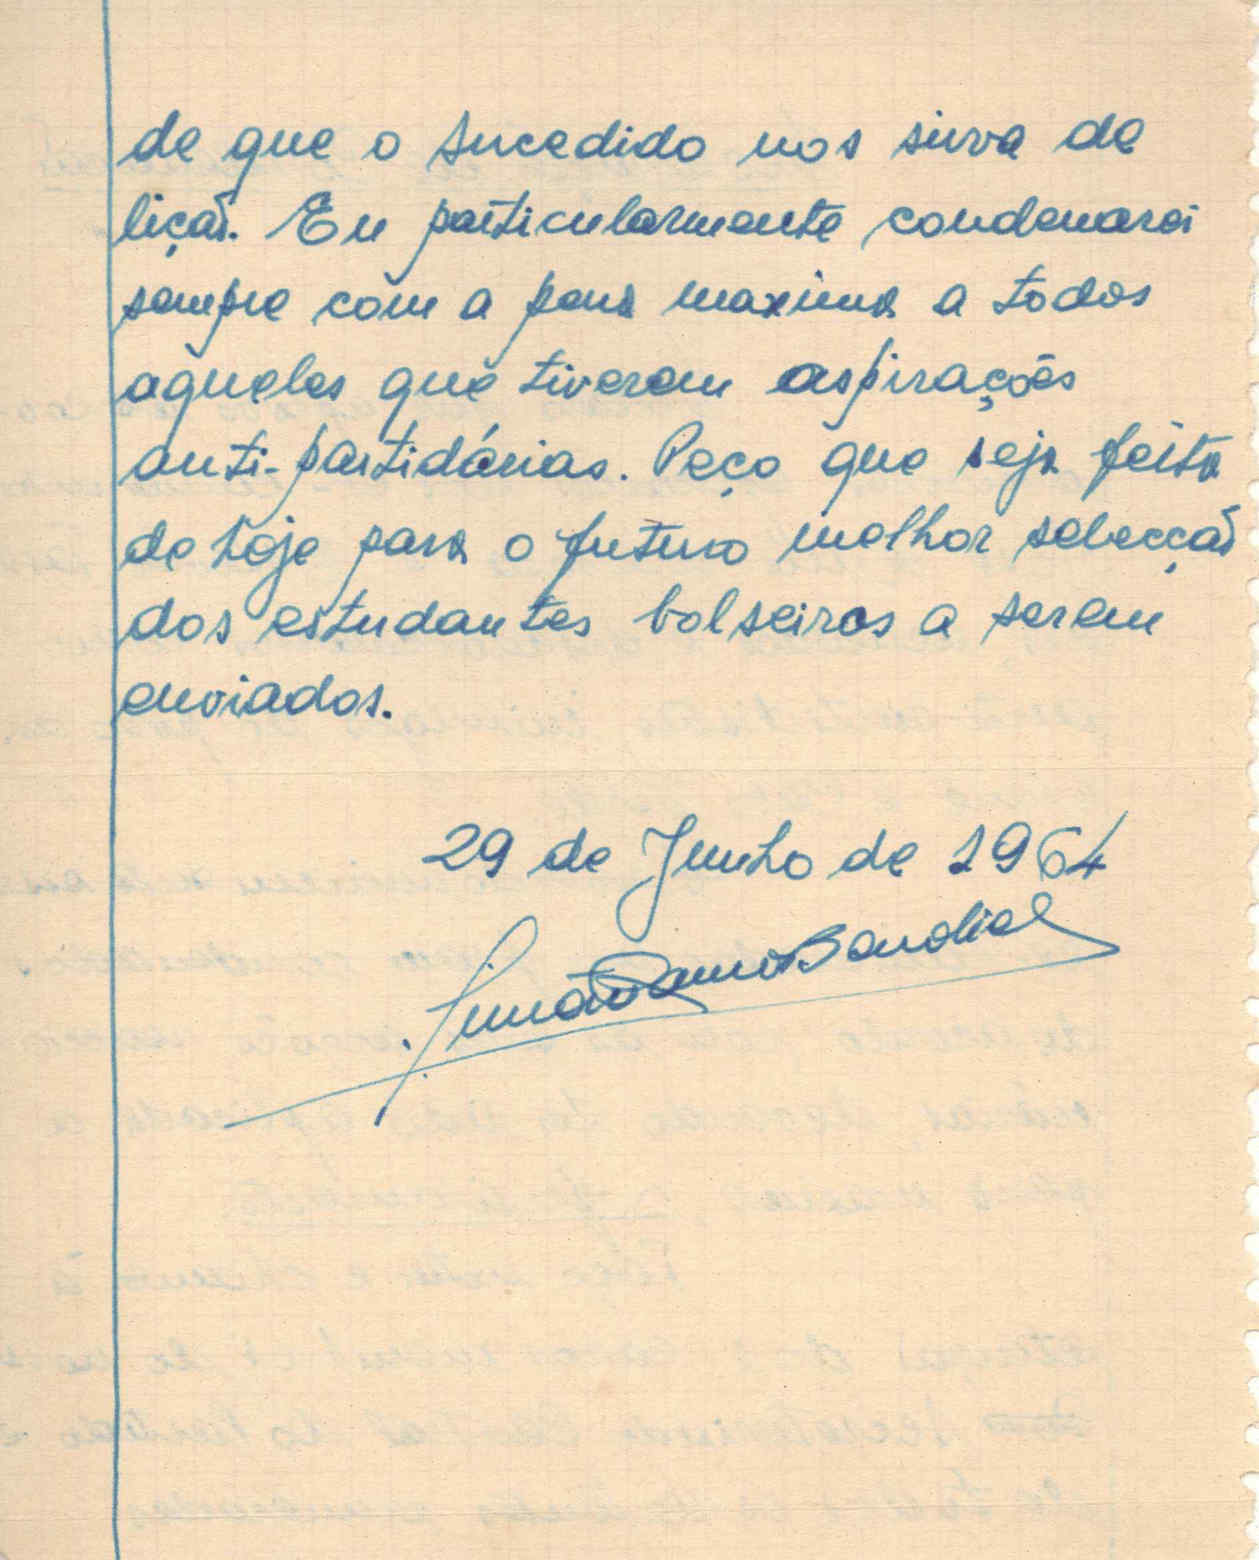 de que o sucedido nos sirva de
lição. Eu particularmente condenarei
sempre com a pena maxima a todos
aqueles que tiverem aspirações
anti-partidárias. Peço que seja feita
de hoje para o futuro melhor selecção
dos estudantes bolseiros a serem
enviados.
29 de Junho de 1964